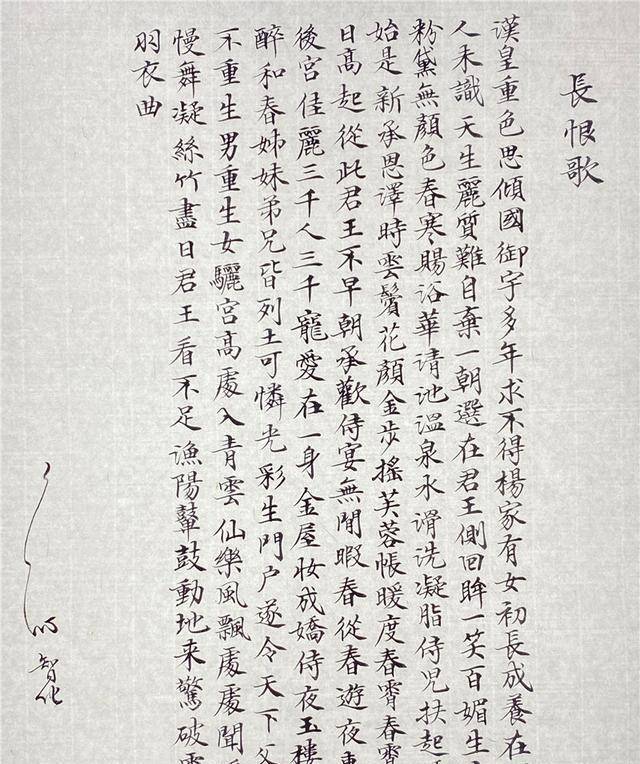 長恨歌
漢皇重色思傾國御宇多年求不得楊家有女初長成養在
人未識天生麗質難自棄一朝選在君王側回眸一笑百媚生
粉黛無顏色春寒賜浴華清池溫泉水滑洗凝脂侍児扶起
始是新承恩澤時雲鬢花顏金步搖芙蓉帳暖度春宵春宵
日高起從此君王不早朝承歡侍宴無閒暇春從春遊夜專
後宮佳麗三千人三千寵愛在一身金屋妝成嬌侍夜玉樓
醉和春姊妹弟兄皆列土可憐光彩生門户遂令天下父
不重生男重生女驪宮高處入青雲仙樂風飄處處聞
慢舞凝絲竹盡日君王看不足漁陽鼙鼓動地来驚破霓
羽衣曲
智化